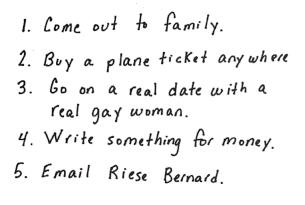 1. Come out to family.
2. Buy a plane ticket anywhere
3. Go on a real date with a
real gay woman.
4. Write something for money.
5. Email Riese Bernard.